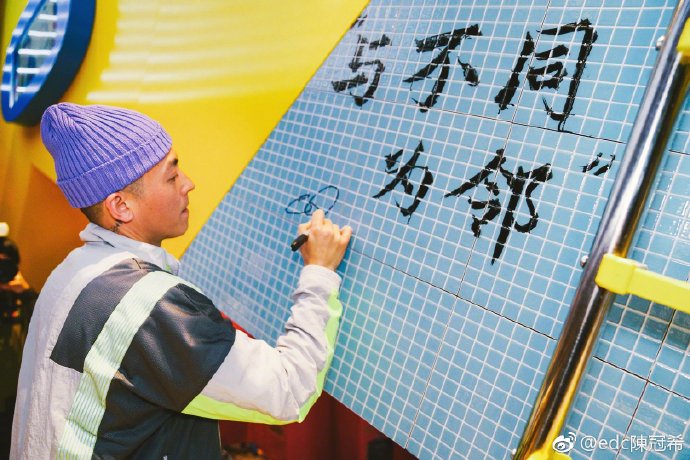 与不同
为邻”
@edc陳冠希